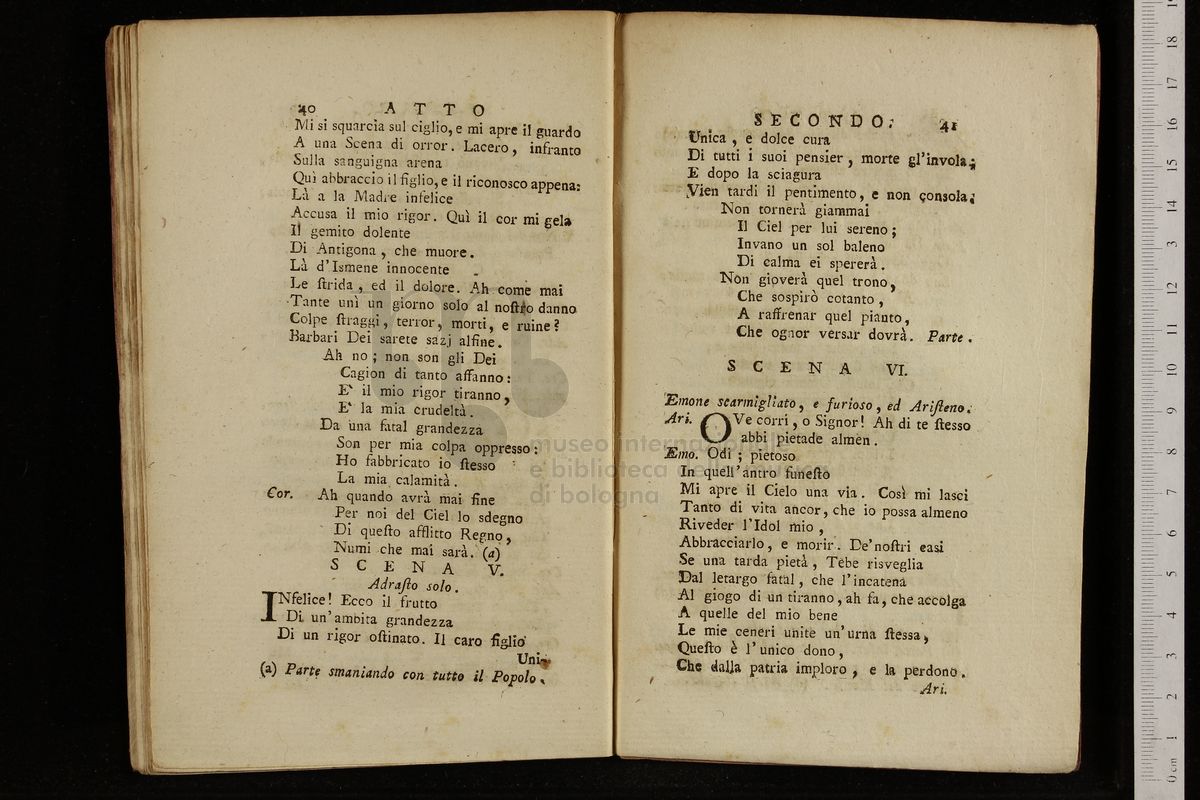 40 ATTO
Mi si squarcia sul ciglio, e mi apre il guardo
A una Scena di orror. Lacero, infranto
Sulla sanguigna arena
Quì abbraccio il figlio, e il riconosco appena:
Là a la Madre infelice
Accusa il mio rigor. Quì il cor mi gela
Il gemito dolente
Di Antigona, che muore.
Là d'Ismene innocente
Le ſtrida, ed il dolore. Ah come mai
Tante unì un giorno solo al noſtro danno
Colpe ſtraggi, terror, morti, e ruine?
Barbari Dei sarete sazj alfine.
Ah no; non son gli Dei
Cagion di tanto affanno:
E' il mio rigor tiranno,
E' la mia crudeltà.
Da una fatal grandezza
Son per mia colpa oppresso:
Ho fabbricato io ſtesso
La mia calamità.
Cor. Ah quando avrà mai fine
Per noi del Ciel lo sdegno
Di queſto afflitto Regno,
Numi che mai sarà. (a)
SCENA V.
Adraſto solo.
INfelice! Ecco il frutto
Di un'ambita grandezza
Di un rigor oſtinato. Il caro figlio
Uni-
(a) Parte smaniando con tutto il Popolo.
SECONDO. 41
Unica, e dolce cura
Di tutti i suoi pensier, morte gl'invola;
E dopo la sciagura
Vien tardi il pentimento, e non consola;
Non tornerà giammai
Il Ciel per lui sereno;
Invano un sol baleno
Di calma ei spererà.
Non gioverà quel trono,
Che sospirò cotanto,
A raffrenar quel pianto,
Che ognor versar dovrà. Parte.
SCENA VI.
Emone scarmigliato, e furioso, ed Ariſteno.
Ari. OVe corri, o Signor! Ah di te ſtesso
abbi pietade almen.
Emo. Odi; pietoso
In quell'antro funeſto
Mi apre il Cielo una via. Così mi lasci
Tanto di vita ancor, che io possa almeno
Riveder l'Idol mio,
Abbracciarlo, e morir. De'noſtri casi
Se una tarda pietà, Tebe risveglia
Dal letargo fatal, che l'incatena
Al giogo di un tiranno, ah fa, che accolga
A quelle del mio bene
Le mie ceneri unite un'urna ſtessa,
Queſto è l'unico dono,
Che dalla patria imploro, e la perdono.
Ari.
museo internazionale
e biblioteca della musica
di bologna
0 cm 1 2 3 4 5 6 7 8 9 10 11 12 13 14 15 16 17 18